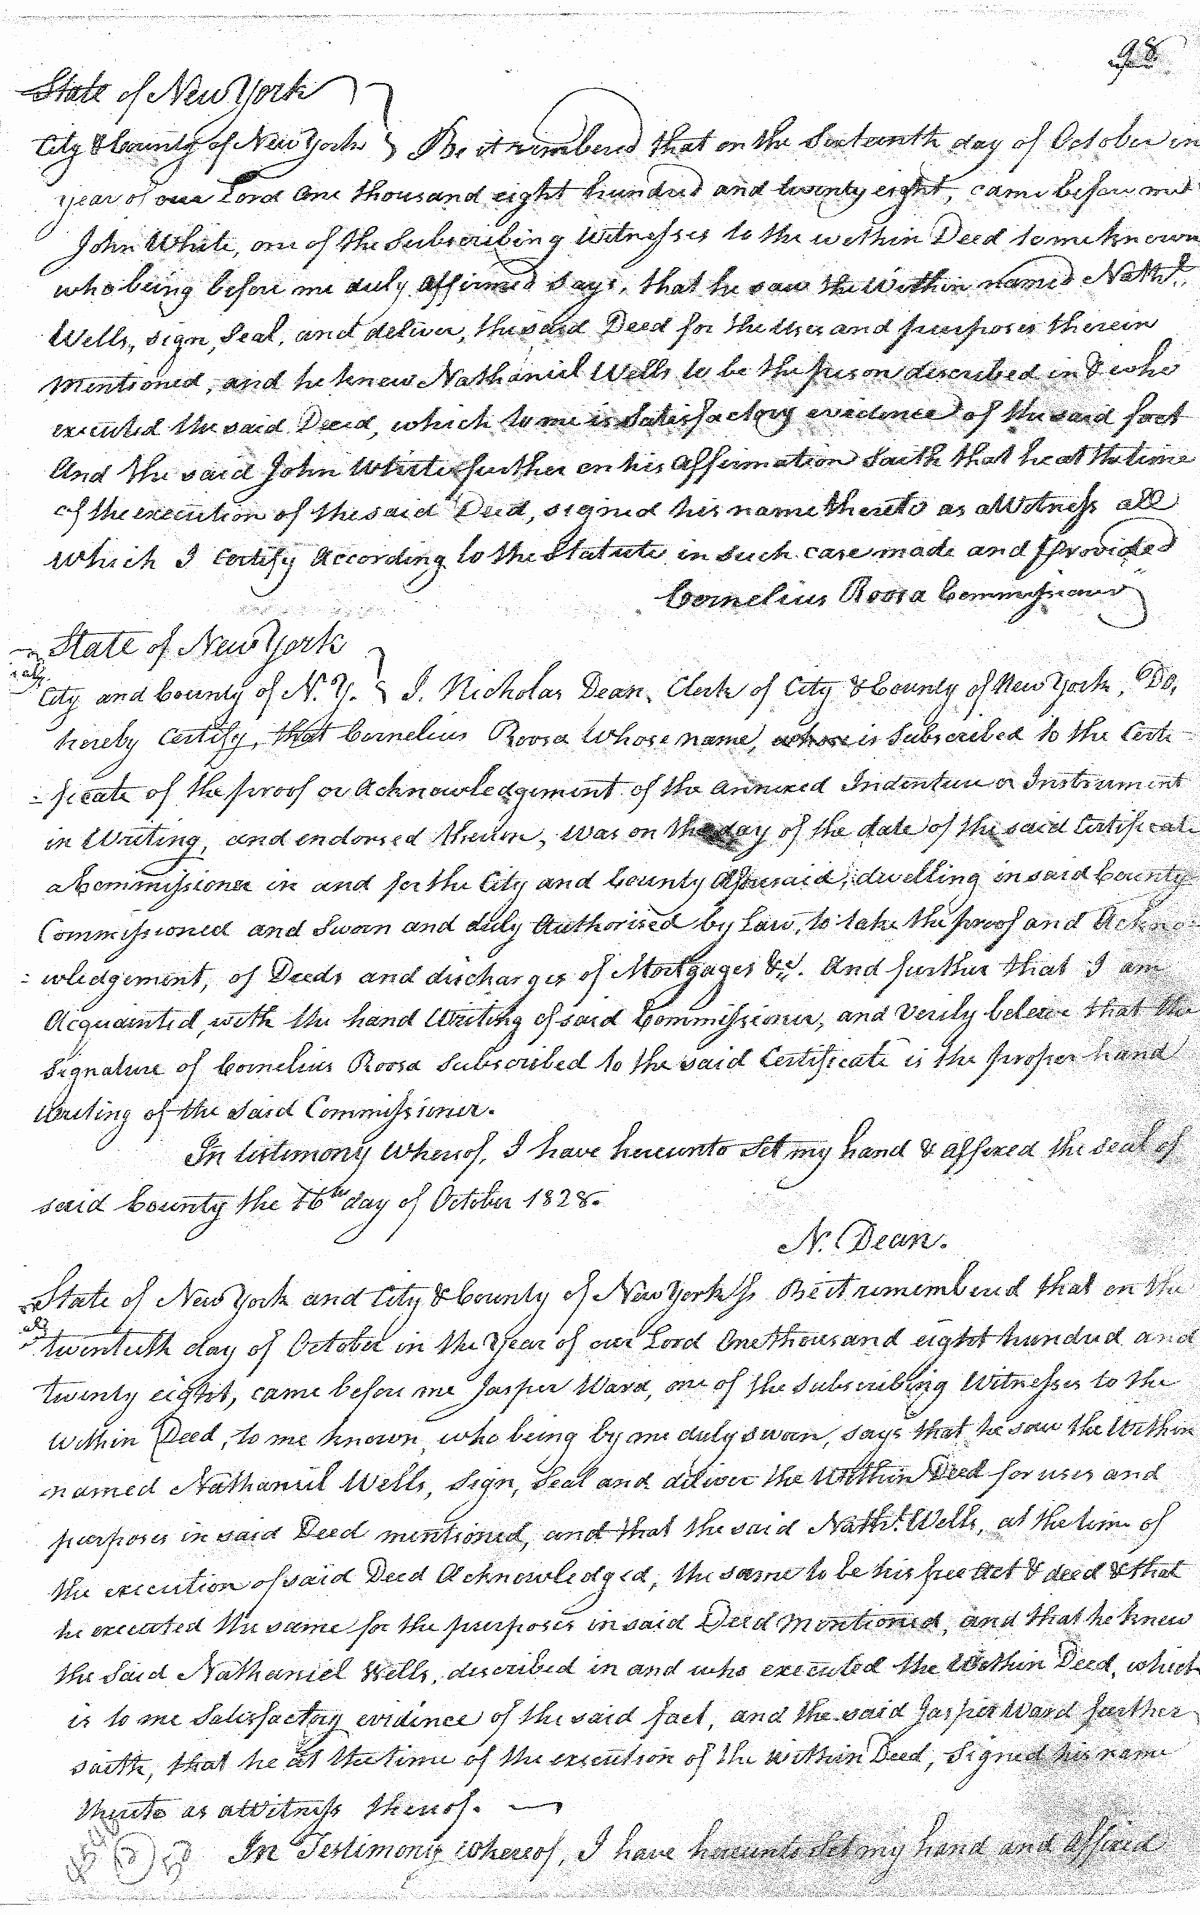 98
State of New York }
City & County of New York } Be it rembered that on the Sixteenth day of October in
year of our Lord One thousand eight hundred and twenty eight, came before me
John White, one of the Subscribing Witnesses to the within Deed to me known
who being before me duly Affirmed Says, that he saw the Within named Nathl.
Wells, sign, Seal, and deliver, the said Deed for the Uses and purposes therein
Mentioned, and he knew Nathaniel Wells to be the person described in & who
executed the said Deed, which to me is Satisfactory evidence of the said fact
And the said John White further on his Affirmation Saith that he at the time
of the execution of the said Deed, signed his name thereto as a Witness all
which I Certify According to the Statute in such case made and Provided
Cornelius Roosa Commissioner
State of New York }
City and County of N. Y. } I. Nicholas Dean, Clerk of City & County of New York, Do,
hereby Certify, that Cornelius Roosa Whose name, whose is Subscribed to the Certi-
=ficate of the proof or Acknowledgement of the annexed Indenture or Instrument
in Writing, and endorsed thereon, Was on the day of the date of the said Certificate
a Commissioner in and for the City and County Aforesaid, dwelling in said County
Commissioned and Sworn and duly Authorised by Law, to take the proof and Ackno=
=wledgement, of Deeds and discharges of Mortgages &c. And further that I am
Acquainted, with the hand Writing of said Commissioner, and Verily beleive that the
Signature of Cornelius Roosa Subscribed to the said Certificate is the proper hand
writing of the said Commissioner.
In testimony Whereof, I have hereunto Set my hand & affixed the seal of
said County the 16th day of October 1828.
N. Dean.
State of New York and City & County of New York Ss Be it remembered that on the
twentieth day of October in the Year of our Lord One thousand eight hundred and
twenty eight, came before me Jasper Ward, one of the Subscribing Witnesses to the
Within Deed, to me known, who being by me duly sworn, says that he saw the Within
named Nathaniel Wells, Sign, Seal and deliver the Within Deed for uses and
purposes in said Deed mentioned, and that the said Nathl. Wells, at the time of
the execution of said Deed Acknowledged, the same to be his free Act & deed & that
he executed the same for the purposes in said Deed Mentioned, and that he knew
the Said Nathaniel Wells, described in and who executed the Within Deed, which
is to me Satisfactory evidence of the said fact, and the said Jasper Ward further
saith, that he at the time of the execution of the within Deed, Signed his name
thereto as a Witness thereof.
In Testimony whereof, I have hereunto Set my hand and affixed